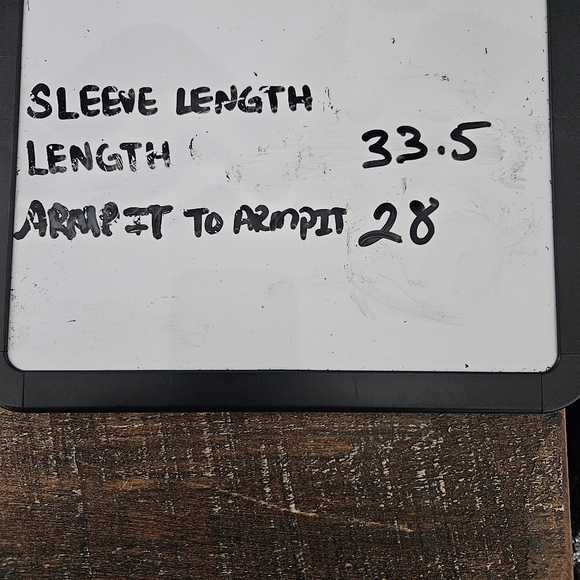 SLEEVE LENGTH
LENGTH 33.5
ARMPIT TO ARMPIT 28